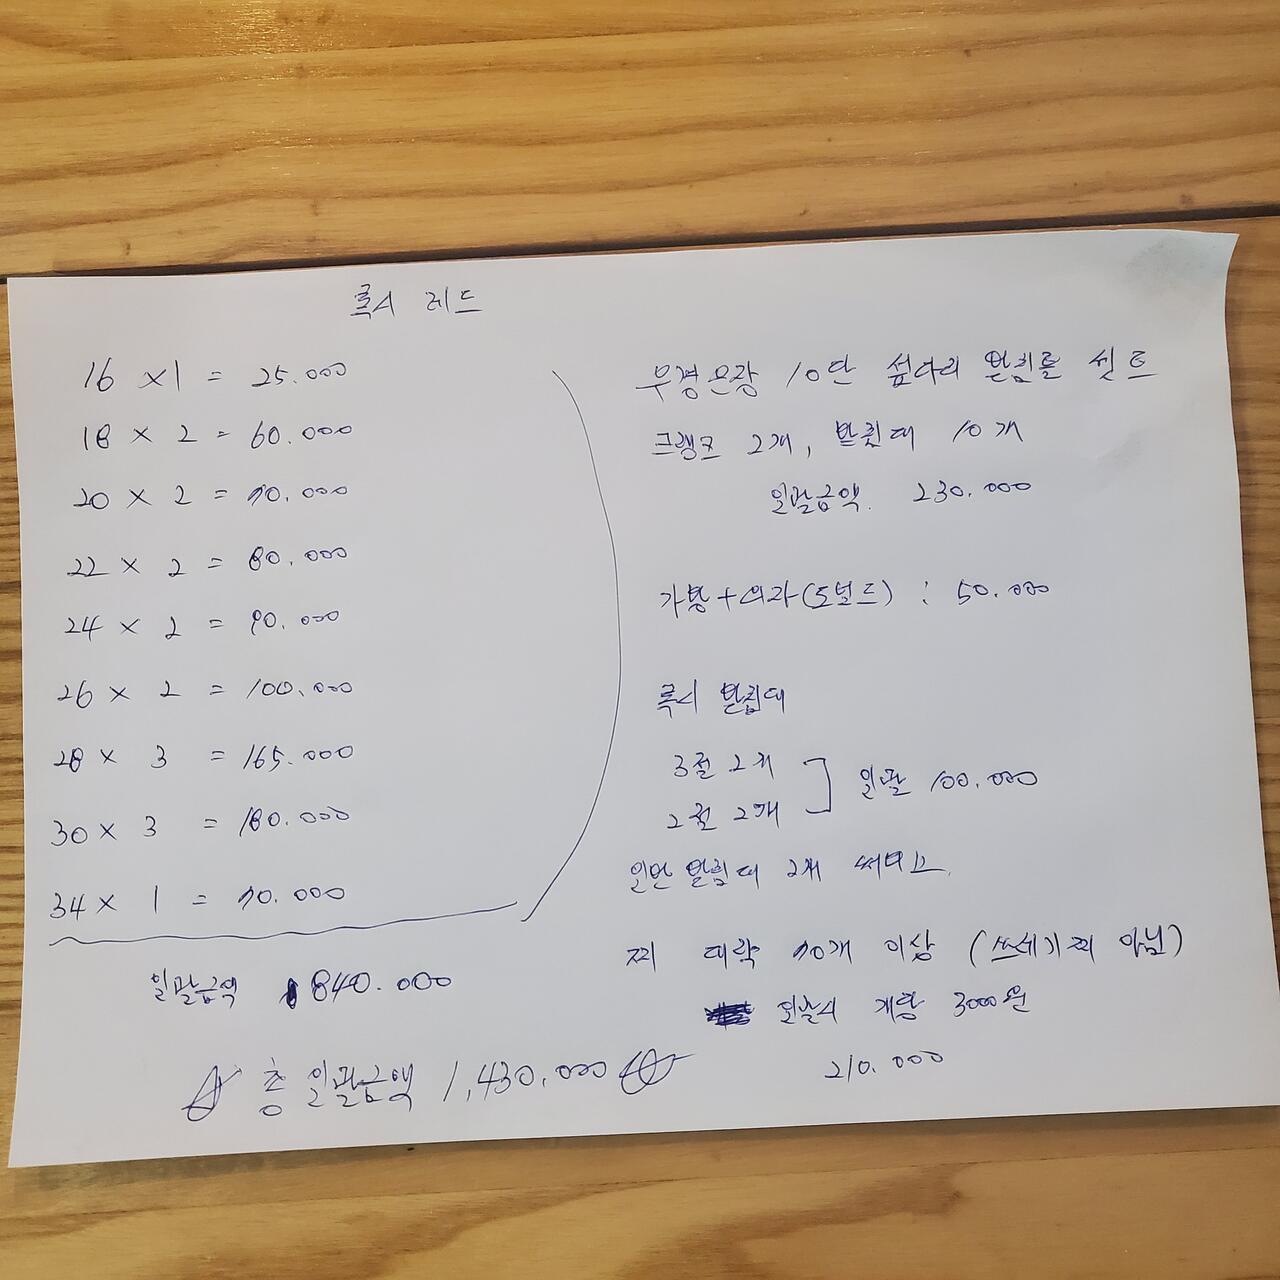 록시 레드
16 × 1 = 25.000
18 × 2 = 60.000
20 × 2 = 70.000
22 × 2 = 80.000
24 × 2 = 90.000
26 × 2 = 100.000
28 × 3 = 165.000
30 × 3 = 180.000
34 × 1 = 70.000
일괄금액 840.000
우경은광 10단 섶다리 받침틀 셋트
크랭크 2개, 받침대 10개
일괄금액. 230.000
가방+의자(도널드) : 50.000
록시 받침대
3절 2개
2절 2개
일괄 100.000
일반 받침대 2개 써비스
찌 대략 70개 이상 (쓰레기찌 아님)
일괄시 개당 3000원
210.000
총 일괄금액 1,430.000